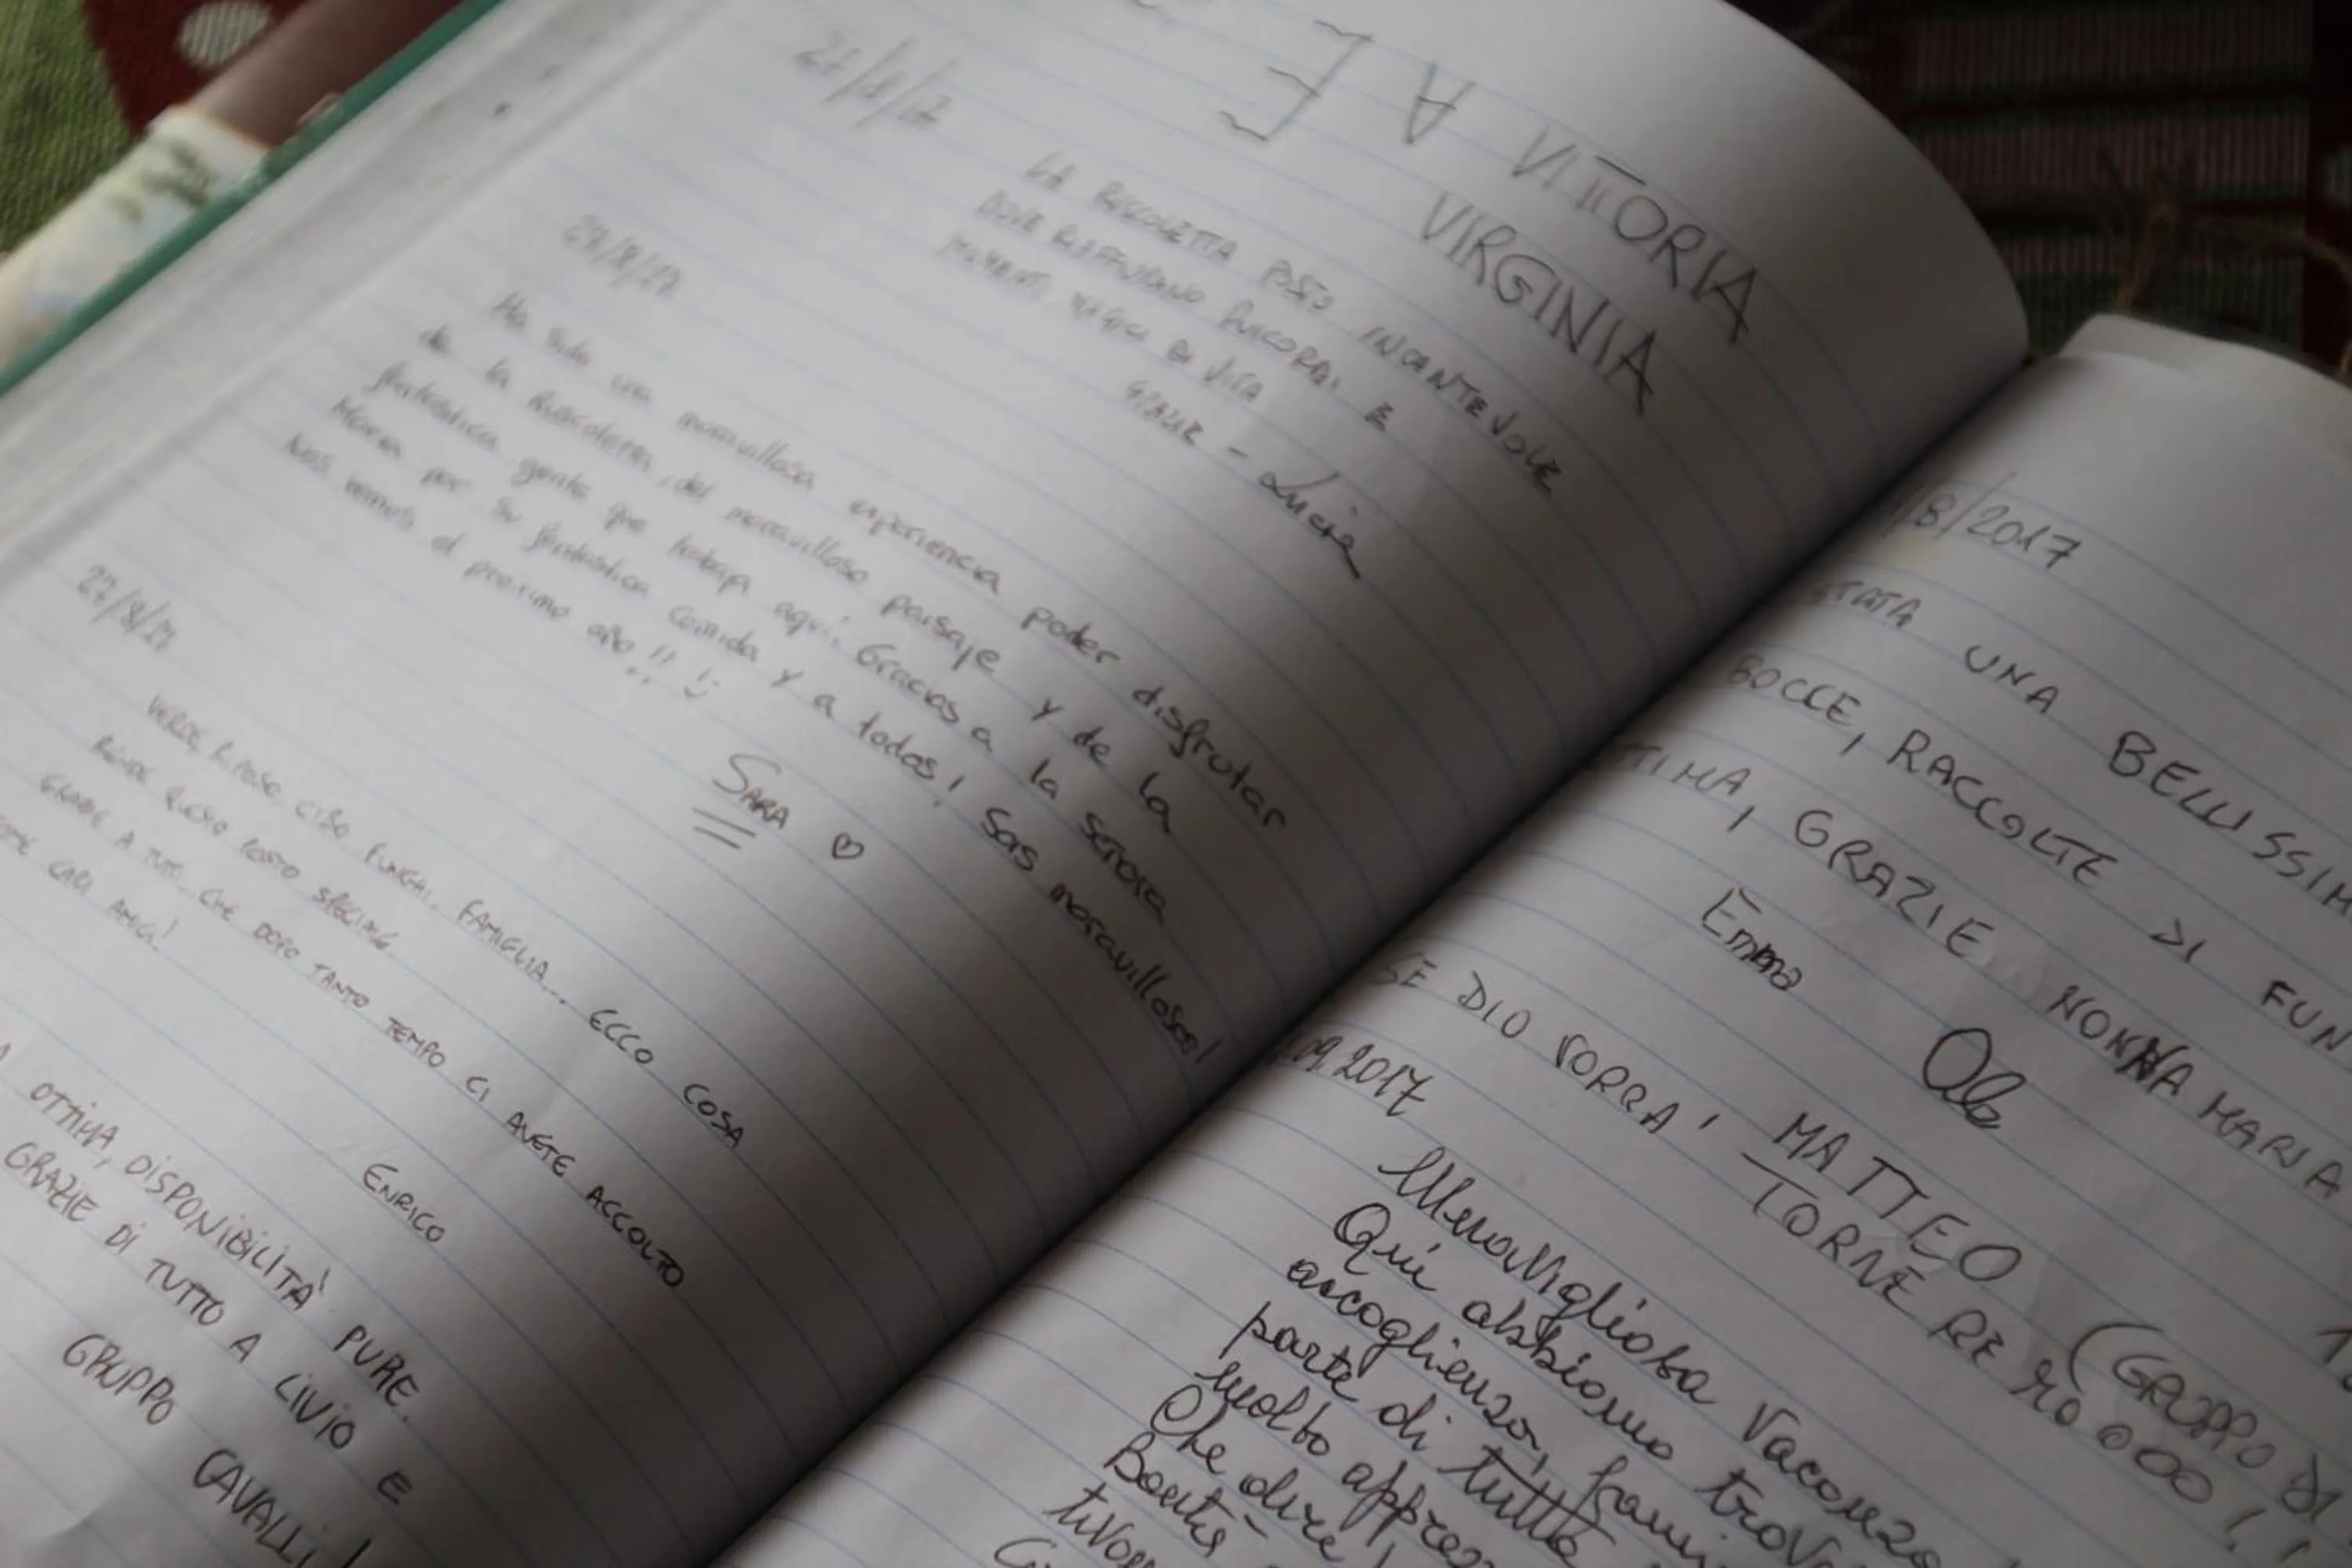 E A VITTORIA
VIRGINIA
27/8/17
LA RUSCOLETTA POSTO INCANTEVOLE
DOVE RIAFFIORANO RICORDI E
MOMENTI MAGICI DI VITA
GRAZIE - Lucia
27/8/17
Ha sido una maravillosa experiencia poder disfrutar
de la Ruscoletta, del maravilloso paisaje y de la
fantástica gente que trabaja aquí. Gracias a la señora
Maria por su fantástica comida y a todos! Sois maravillosos!
Nos vemos el proximo año!! :)
SARA ♡
27/8/17
VERDE, RIPOSO, CIBO, FUNGHI, FAMIGLIA... ECCO COSA
RENDE QUESTO POSTO SPECIALE
GRAZIE A TUTTI CHE DOPO TANTO TEMPO CI AVETE ACCOLTO
COME CARI AMICI!
ENRICO
OTTIMA, DISPONIBILITA' PURE.
GRAZIE DI TUTTO A LIVIO E
GRUPPO CAVALLI!
/8/2017
STATA UNA BELLISSIM
BOCCE, RACCOLTE DI FUN
TIMA, GRAZIE NONNA MARIA
Emma
SE DIO VORRA' MATTEO (GRUPPO DI
TORNERE MO
.09.2017
Meravigliosa Vacanza
Qui abbiamo trova
accoglienza, fami
parte di tutta
molto apprez
Che dire!
Bontà